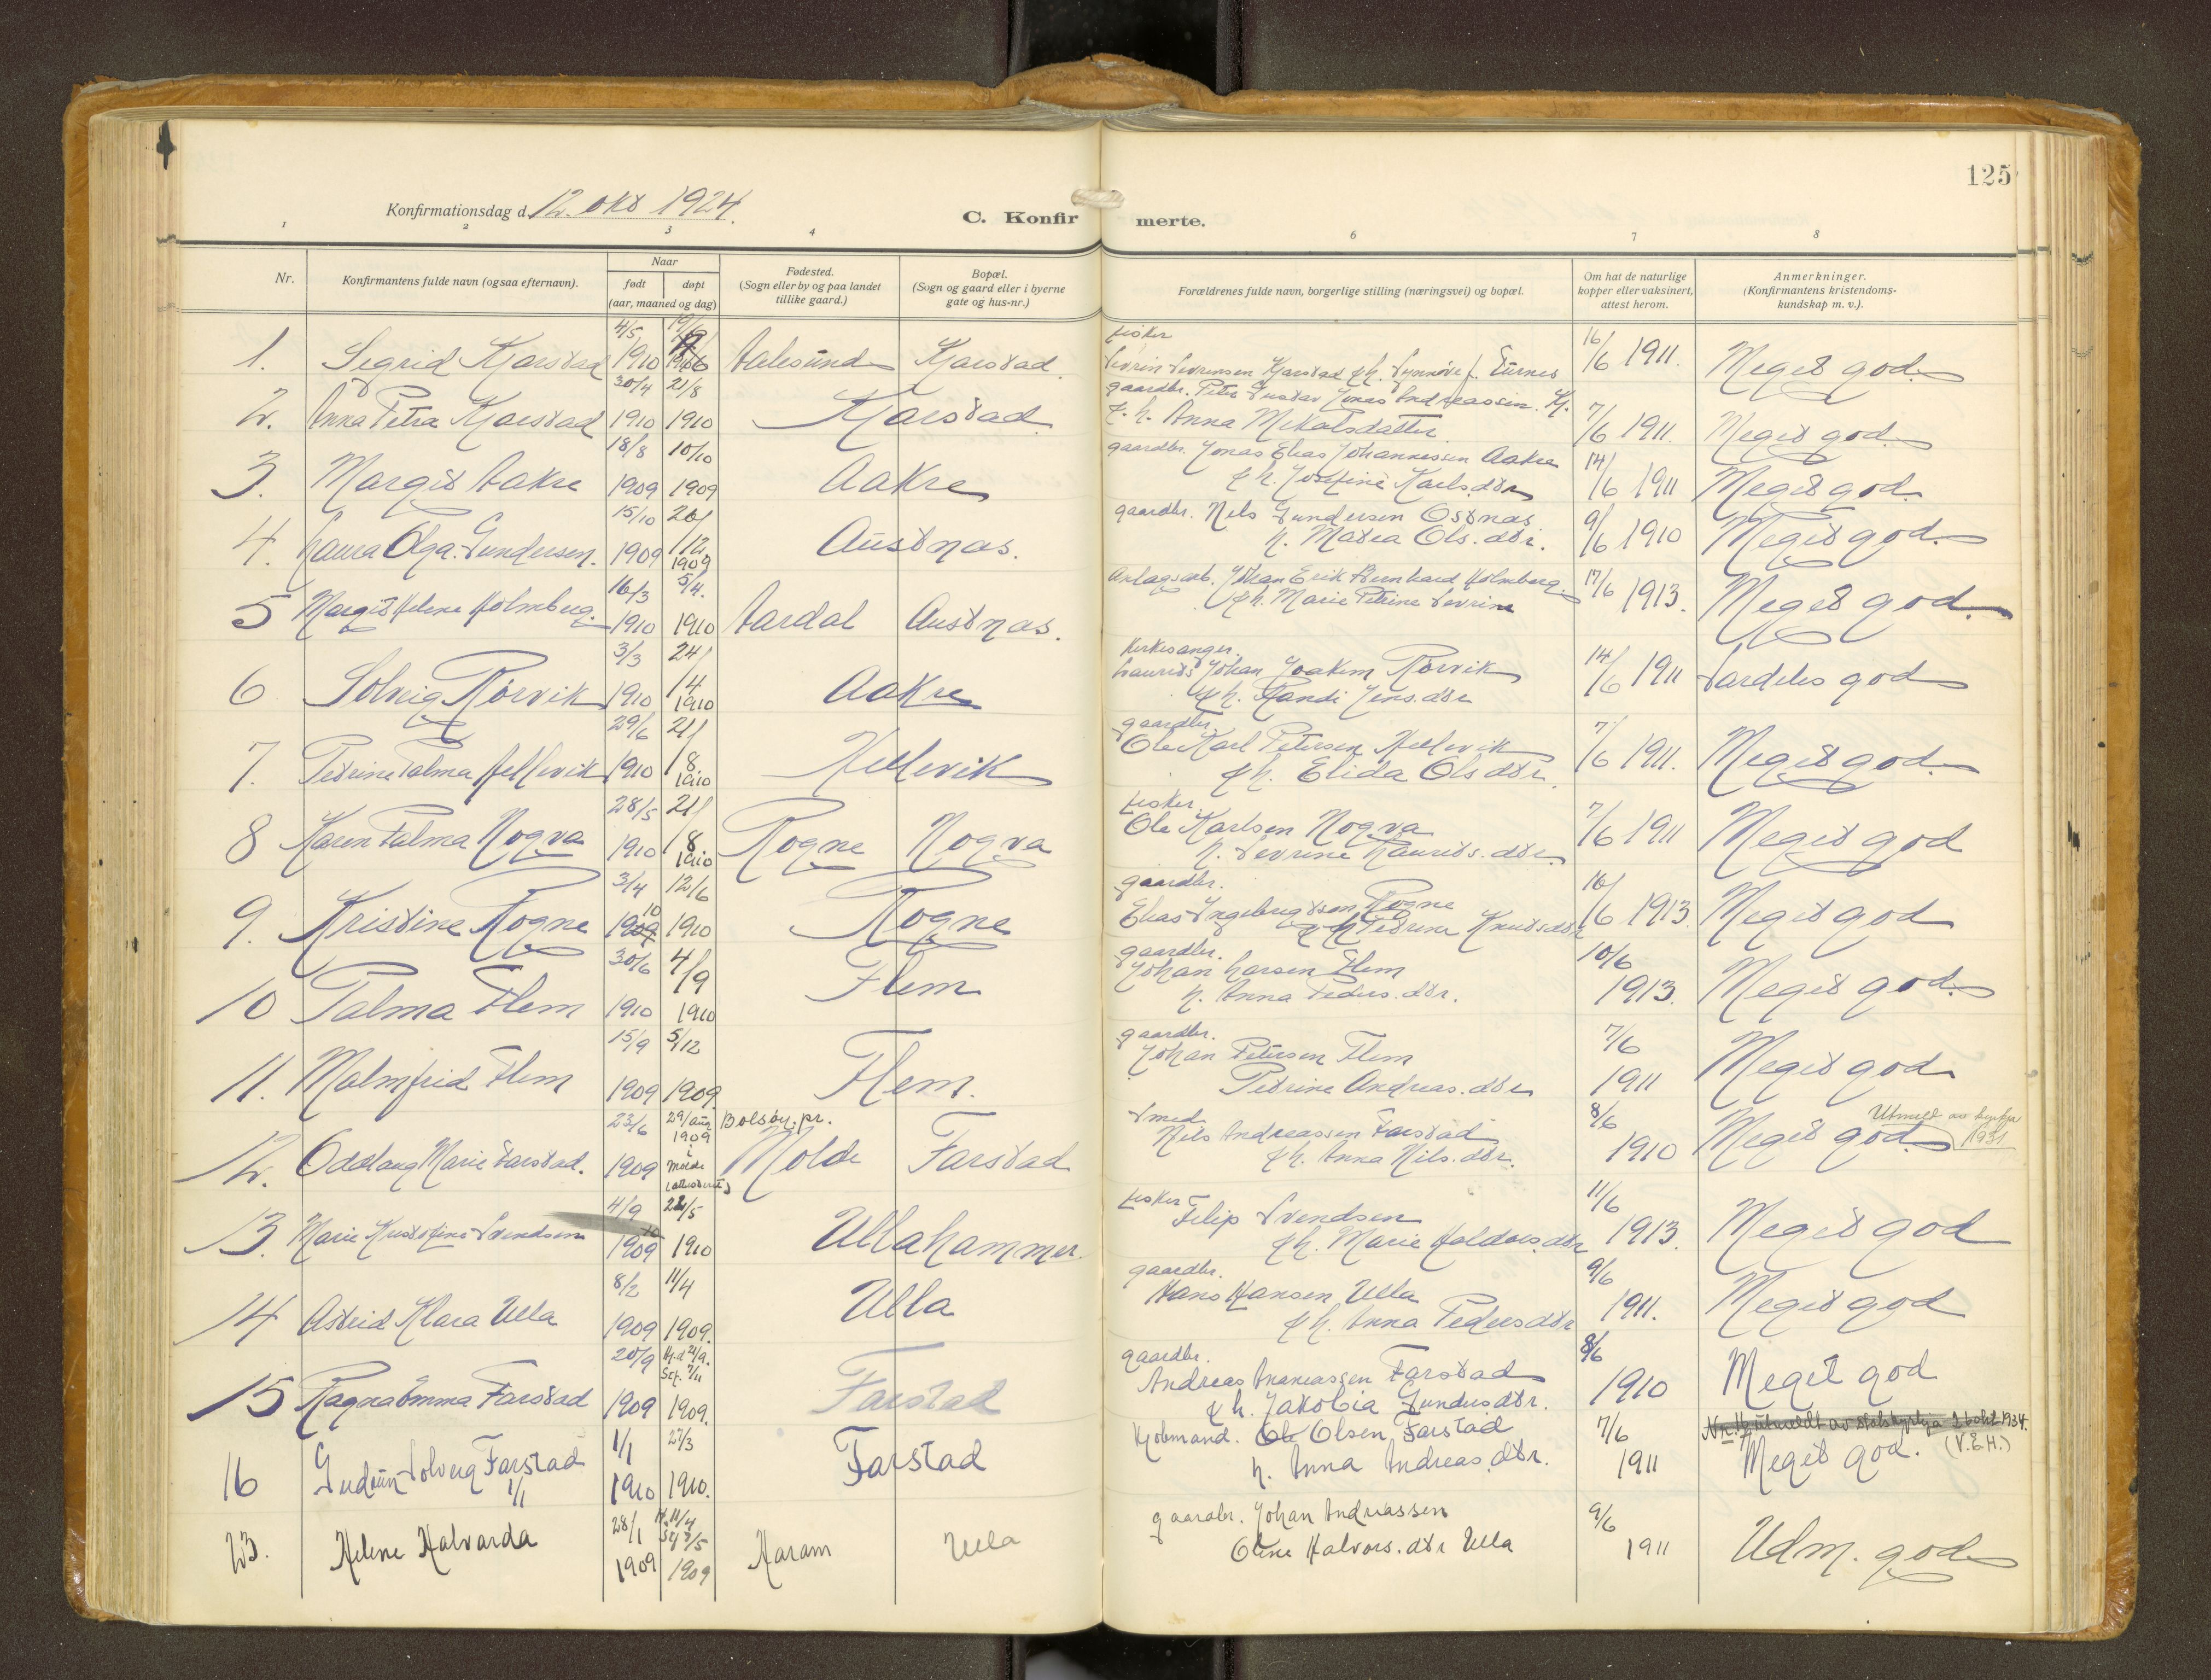 125
Konfirmationsdag d. 12. okt 1924.
C. Konfirmerte.
1 2 3 4 6 7 8
Nr.
Konfirmantens fulde navn (ogsaa efternavn).
Naar
født døpt
(aar, maaned og dag)
Fødested.
(Sogn eller by og paa landet
tillike gaard.)
Bopæl.
(Sogn og gaard eller i byerne
gate og hus-nr.)
Forældrenes fulde navn, borgerlige stilling (næringsvei) og bopæl.
Om hat de naturlige
kopper eller vaksinert,
attest herom.
Anmerkninger.
(Konfirmantens kristendoms-
kundskap m. v.).
1. Sigrid Kjærstad 4/5 1910 Aalesund Kjærstad.
fisker
Sevrin Sevrinsen Kjærstad & h. Synnøve f. 16/6 1911. Meget god.
2. Anna Petra Kjærstad 30/4 1910 21/8 1910 Kjærstad
gaardbr. Peter Gustav Jonas Andreassen. Kj.
& h. Anna Mikalsdatter. 7/6 1911. Meget god.
3. Margit Aakre 18/8 1909 10/10 1909 Aakre
gaardbr. Jonas Elias Johannessen Aakre
& h. Josefine Karls.dtr 14/6 1911 Meget god.
4. Laura Olga Gundersen. 15/10 1909 26/12 1909 Austnæs.
gaardbr. Nels Gundersen Ostnæs.
h. Matea Ols.dtr. 9/6 1910 Meget god.
5 Margit Helene Holmberg. 16/3 1910 5/4. 1910 Aardal Austnæs.
Anlægsarb. Johan Erik Bernhard Holmberg.
& h. Marie Petrine Sevrine 17/6 1913. Meget god.
6 Solveig Rørvik 3/3 1910 24/4 1910 Aakre
Kirkesanger.
Laurits Johan Joakim Rørvik
& h. Randi Jens.dtr 14/6 1911 Særdeles god
7. Petrine Palma Hellevik 29/6 1910 21/8. 1910 Hellevik
gaardbr.
Ole Karl Petersen Hellevik
& h. Elida Olsdtr. 7/6 1911. Meget god.
8 Karen Palma Nogva 28/5 1910 21/8 1910 Rogne Nogva
fisker.
Ole Karlsen Nogva
h. Sevrine Laurits.dtr. 7/6 1911 Meget god
9. Kristine Rogne 3/4 1909 10 12/6 1910 Rogne
gaardbr.
Elias Ingebrigtsen Rogne
& h. Petrine Knutsdtr 16/6 1913. Meget god
10 Palma Flem 30/6 1910 4/9 1910 Flem
gaardbr.
Johan Larsen Flem
h. Anna Peders.dtr. 10/6 1913. Meget god.
11. Malmfrid Flem 15/9 1909 5/12 1909. Flem.
gaardbr.
Johan Petersen Flem
Petrine Andreas.dtr 7/6 1911 Meget god
12. Oddlaug Marie Farstad. 23/6 1909 29/aug 1909 i Molde Bolsøy. pr. Molde Farstad
Smed
Nils Andreassen Farstad
& h. Anna Nils.dtr. 8/6 1910 Meget god. 1931
13. Marie Kristofine Svendsen 4/9 1909 10 22/5 1910 Ullahammer.
fisker
Filip Svendsen
& h. Marie Haldors.dtr 11/6 1913. Meget god
14 Astrid Klara Ulla 8/2 1909 11/4 1909. Ulla
gaardbr.
Hans Hansen Ulla
& h. Anna Pedersdtr 9/6 1911. Meget god
15 Ragna Emma Farstad 20/9 1909 Hj.d 21/9. St.f. 7/11 1909. Farstad
gaardbr.
Andreas Andreassen Farstad
& h. Jakobia Gunders.dtr. 8/6 1910 Meget god
16 Gudrun Solveig Farstad 1/1 1/1 1910 27/3 1910. Farstad
Kjøbmand. Ole Olsen Farstad
h. Anna Andreas.dtr. 7/6 1911
Nr. 16 utmeldt av statskyrkja 26 okt 1934.
(V.E.H.)
Meget god.
23. Helene Halvarda 28/1 1909 H. 11/4 St.f 2/5 1909 Haram Ulla
gaardbr. Johan Andreassen
Oline Halvors.dtr Ulla 9/6 1911 Udm. god